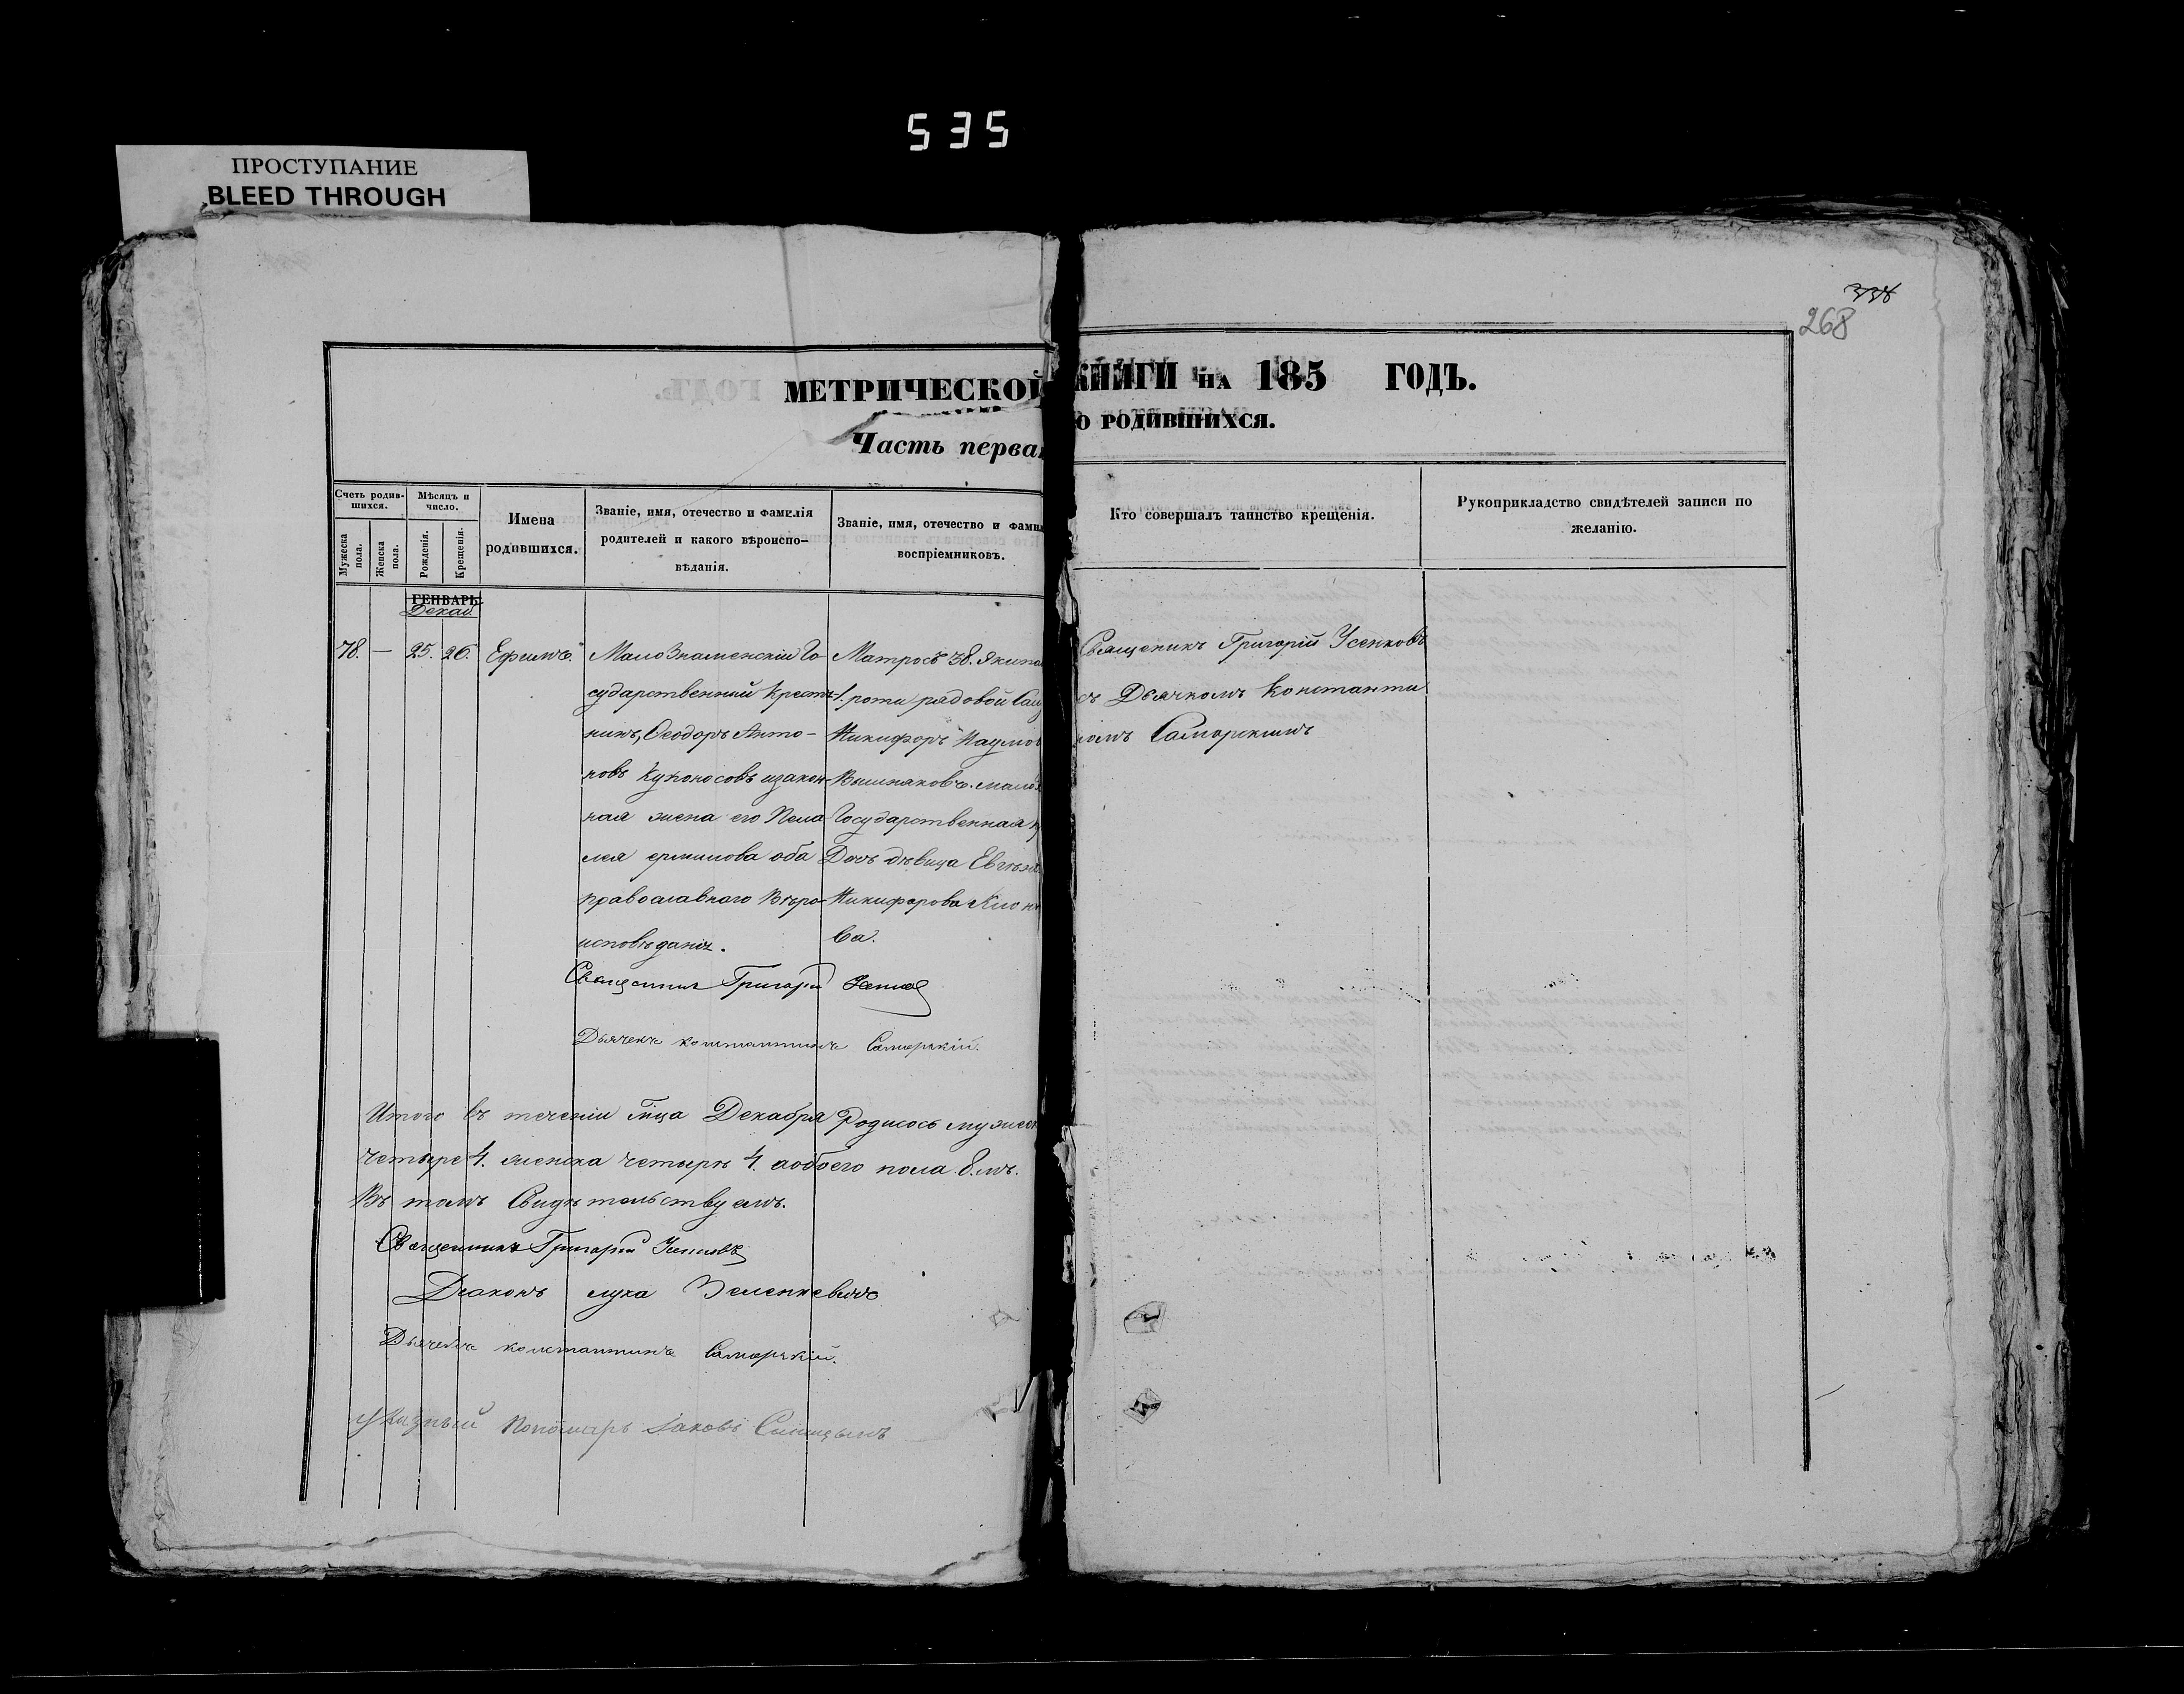 535
ПРОСТУПАНИЕ
BLEED THROUGH
338
268
МЕТРИЧЕСКОЙ КНИГИ НА 185 ГОДЪ.
Часть первая О РОДИВШИХСЯ.
Счетъ родив-
шихся.
Мужеска пола.
Женска пола.
Мѣсяцъ и
число.
Рожденія.
Крещенія.
Имена
родившихся.
Званіе, имя, отечество и фамилія
родителей и какого вѣроиспо-
вѣданія.
Званіе, имя, отечество и фами
воспріемниковъ.
Кто совершалъ таинство крещенія.
Рукоприкладство свидѣтелей записи по
желанію.
ГЕНВАРЬ
Декаб
78. — 25. 26. Ефимъ.
Мало Знаменскій Го-
сударственный Кресть-
нинъ, Ѳеодоръ Анто-
новъ Курносовъ изакон-
ная жена его Пела
гея ермилова оба
православнаго Вѣро-
исповѣданія.
Матросъ 38. Экипа
1. роти рядовой
Никифоръ Наумов
Вишняковъ. мало
Государственная
Дочь дѣвица Евгені
Никифорова
ва.
Священникъ Григорій Усенковъ
съ Дьячкомъ Константи
номъ Самарскимъ
Священникъ Григорій
Дьячекъ константинъ Самарскій.
Итого въ теченіи мца Декабря Родилось мужеск
четыре 4. женска четыри 4. аобоего пола 8.мь.
Въ томъ Свидѣтельствуемъ.
Священникъ Григорій Усенковъ
Діаконъ лука Зеленкевичъ
Дьячекъ константинъ Самарскій.
Указный Пономарь Іаковъ